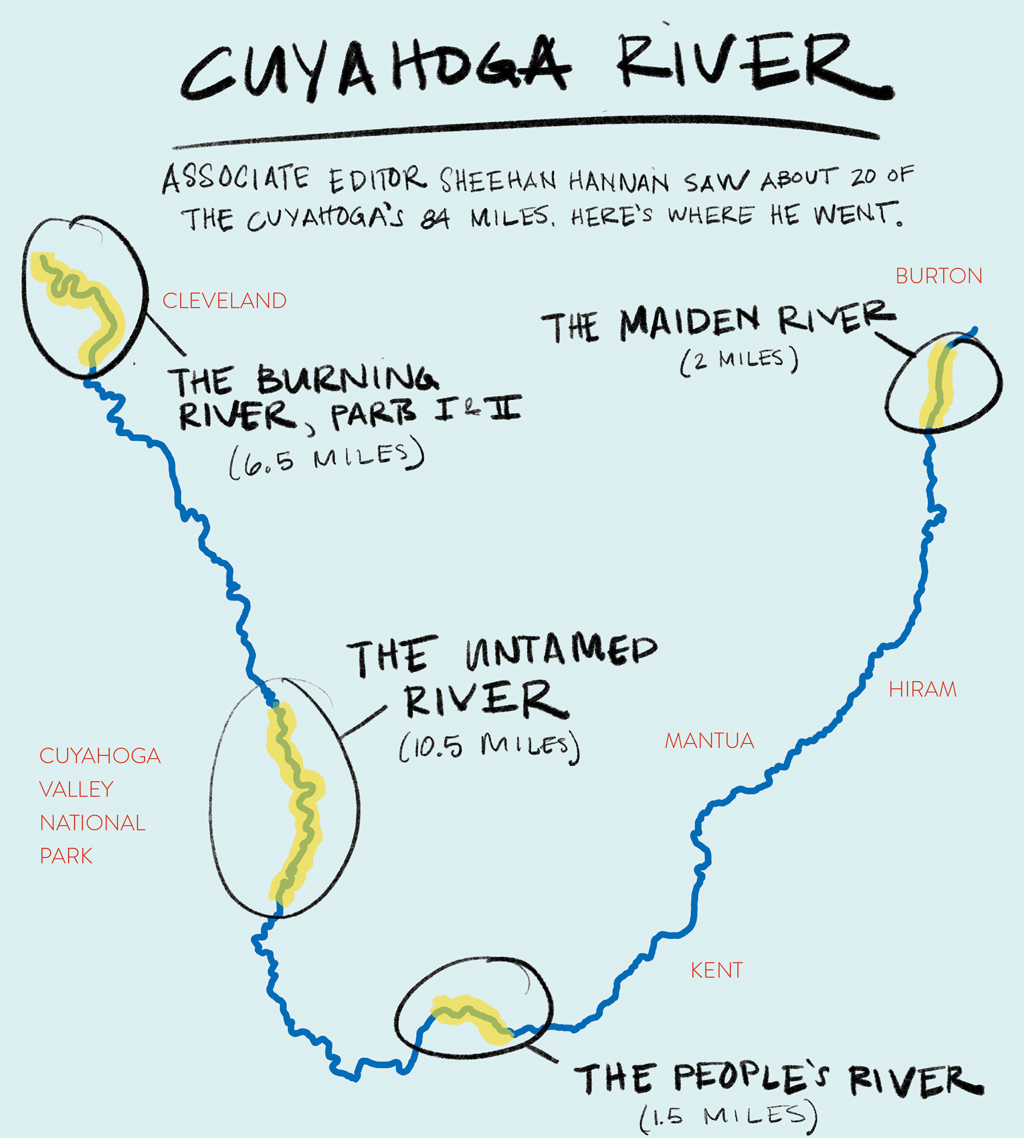 CUYAHOGA RIVER
ASSOCIATE EDITOR SHEEHAN HANNAN SAW ABOUT 20 OF
THE CUYAHOGA'S 84 MILES. HERE'S WHERE HE WENT.
BURTON
CLEVELAND
THE MAIDEN RIVER
(2 MILES)
THE BURNING
RIVER, PARTS I & II
(6.5 MILES)
THE UNTAMED
RIVER
(10.5 MILES)
HIRAM
MANTUA
CUYAHOGA
VALLEY
NATIONAL
PARK
KENT
THE PEOPLE'S RIVER
(1.5 MILES)